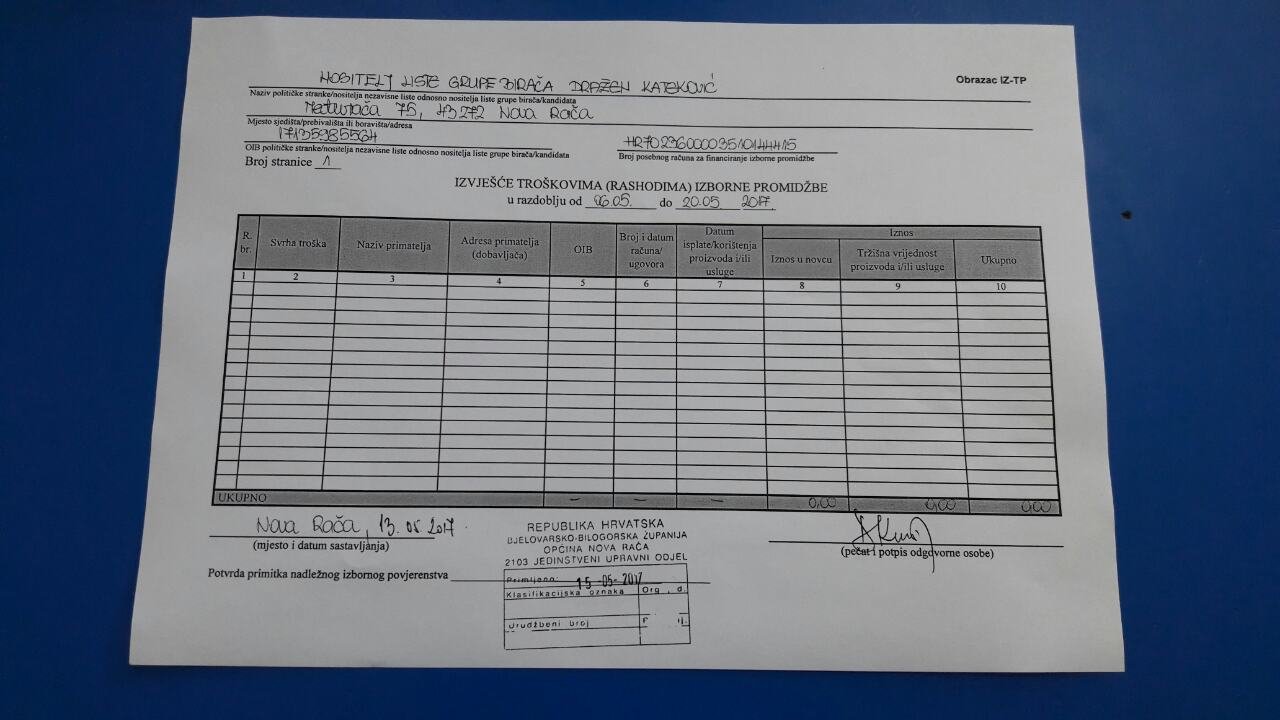 Obrazac IZ-TP
NOSITELJ LISTE GRUPE BIRAČA DRAŽEN KATEKOVIĆ
Naziv političke stranke/nositelja nezavisne liste odnosno nositelja liste grupe birača/kandidata
75, 43272 Nova Rača
Mjesto sjedišta/prebivališta ili boravišta/adresa
17135985564
OIB političke stranke/nositelja nezavisne liste odnosno nositelja liste grupe birača/kandidata
HR7023600003510144415
Broj posebnog računa za financiranje izborne promidžbe
Broj stranice 1
IZVJEŠĆE TROŠKOVIMA (RASHODIMA) IZBORNE PROMIDŽBE
u razdoblju od 06.05. do 20.05 2017.
R. br. Svrha troška Naziv primatelja Adresa primatelja (dobavljača) OIB Broj i datum računa/ugovora Datum isplate/korištenja proizvoda i/ili usluge Iznos
Iznos u novcu Tržišna vrijednost proizvoda i/ili usluge Ukupno
1 2 3 4 5 6 7 8 9 10
UKUPNO – – – 0,00 0,00 0,00
Nova Rača, 13.05.2017.
(mjesto i datum sastavljanja)
(pečat i potpis odgovorne osobe)
Potvrda primitka nadležnog izbornog povjerenstva
REPUBLIKA HRVATSKA
BJELOVARSKO-BILOGORSKA ŽUPANIJA
OPĆINA NOVA RAČA
2103 JEDINSTVENI UPRAVNI ODJEL
Primljeno: 15-05-2017
Klasifikacijska oznaka Org. d.
Urudžbeni broj